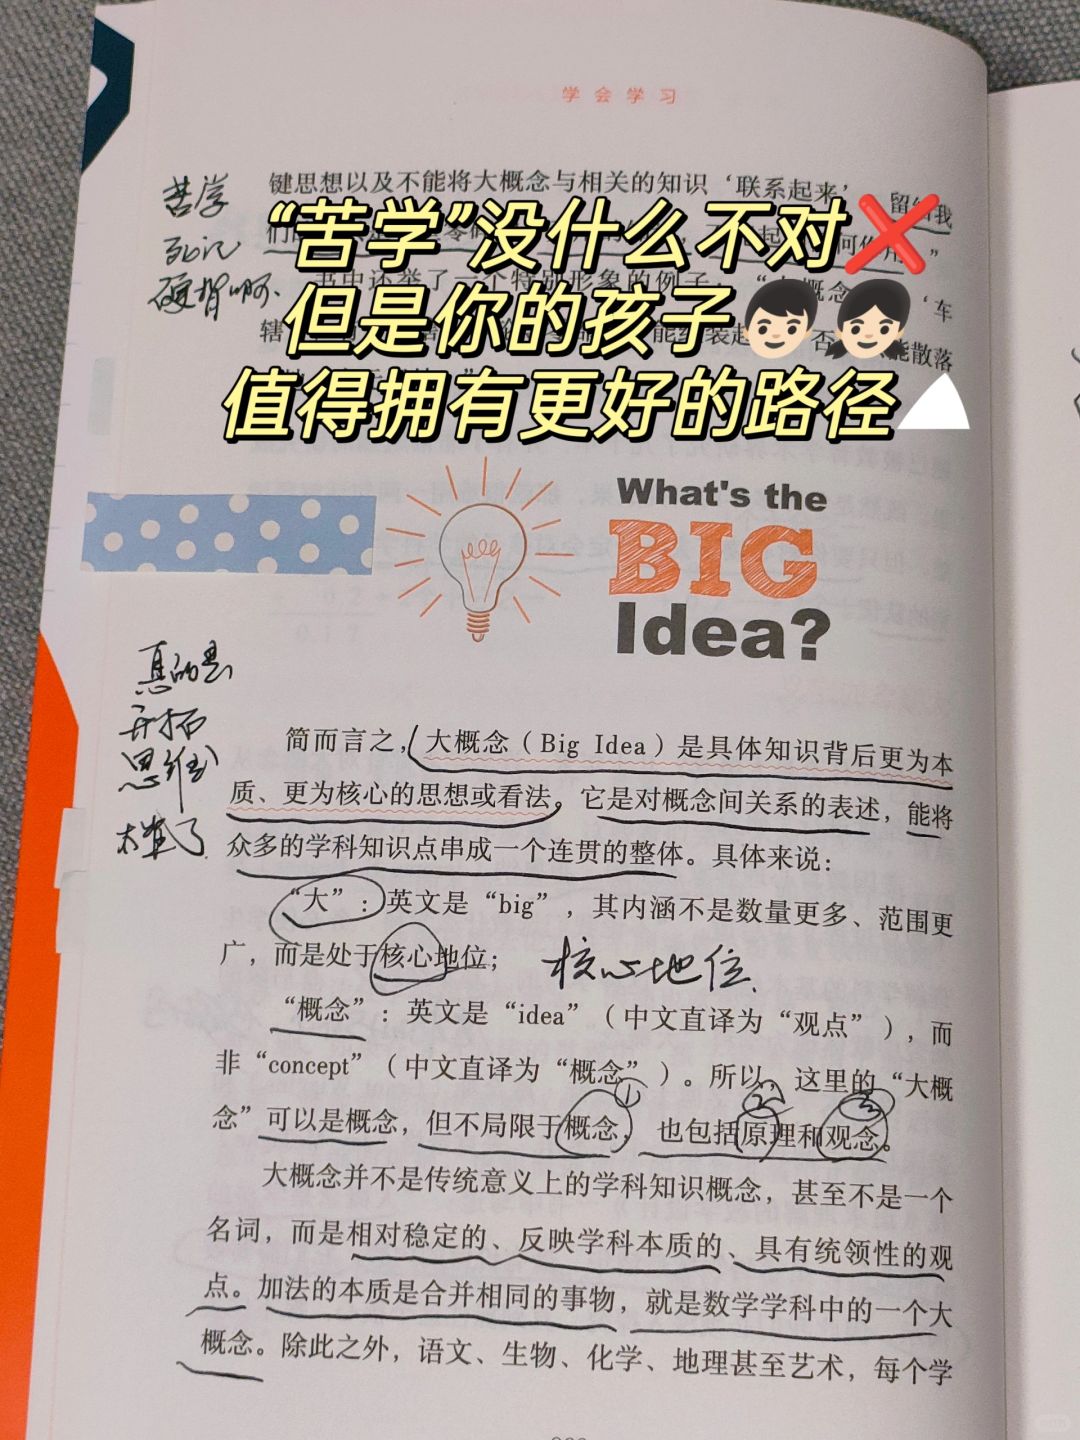 学会学习
苦学
死记
硬背啊.
键思想以及不能将大概念与相关的知识‘联系起来’
留给我
们
“苦学”没什么不对❌
书中还举了一个特别形象的例子：“大概念
‘车
但是你的孩子👦🏻👧🏻
辖
能组装起
否
能散落
值得拥有更好的路径
What's the
BIG
Idea?
真的是
开拓
思维
太准了
简而言之，大概念（Big Idea）是具体知识背后更为本
质、更为核心的思想或看法。它是对概念间关系的表述，能将
众多的学科知识点串成一个连贯的整体。具体来说：
“大”：英文是“big”，其内涵不是数量更多、范围更
广，而是处于核心地位；
核心地位.
“概念”：英文是“idea”（中文直译为“观点”），而
非“concept”（中文直译为“概念”）。所以，这里的“大概
念”可以是概念，但不局限于概念，也包括原理和观念。
① ② ③
大概念并不是传统意义上的学科知识概念，甚至不是一个
名词，而是相对稳定的、反映学科本质的、具有统领性的观
点。加法的本质是合并相同的事物，就是数学学科中的一个大
概念。除此之外，语文、生物、化学、地理甚至艺术，每个学